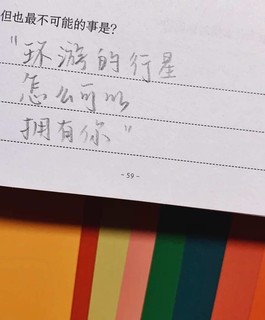 但也最不可能的事是？
"环游的行星
怎么可以
拥有你"
- 59 -